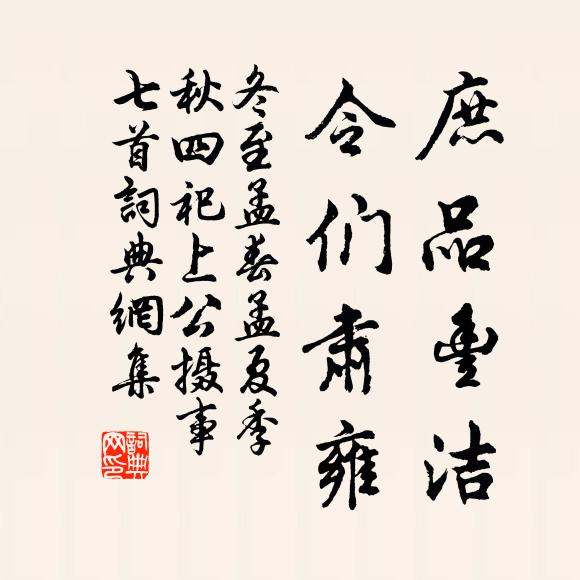 庶品豐洁
令们肃雍
冬至孟春孟夏季
秋四祀上公摄事
七首詞典網集
詞典网印